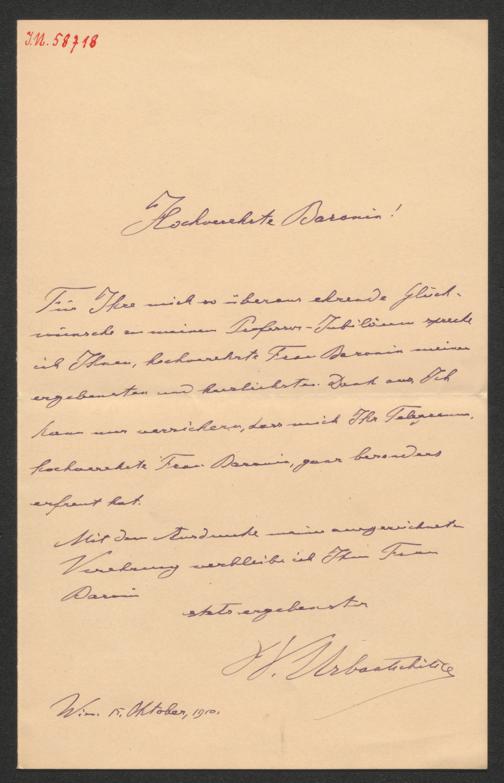 I.N. 58718
Hochverehrte Baronin!
Für Ihre mich so überaus ehrende Glück-
wünsche zu meinem Professor-Jubiläum spreche
ich Ihnen, hochverehrte Frau Baronin meinen
ergebensten und herzlichsten Dank aus. Ich
kann nur versichern, dass mich Ihr Telegramm,
hochverehrte Frau Baronin, ganz besonders
erfreut hat.
Mit dem Ausdrucke meiner ausgezeichneten
Verehrung verbleibe ich Ihnen Frau
Baronin
stets ergebenster
V. Urbantschitsch
Wien. 15. Oktober, 1910.